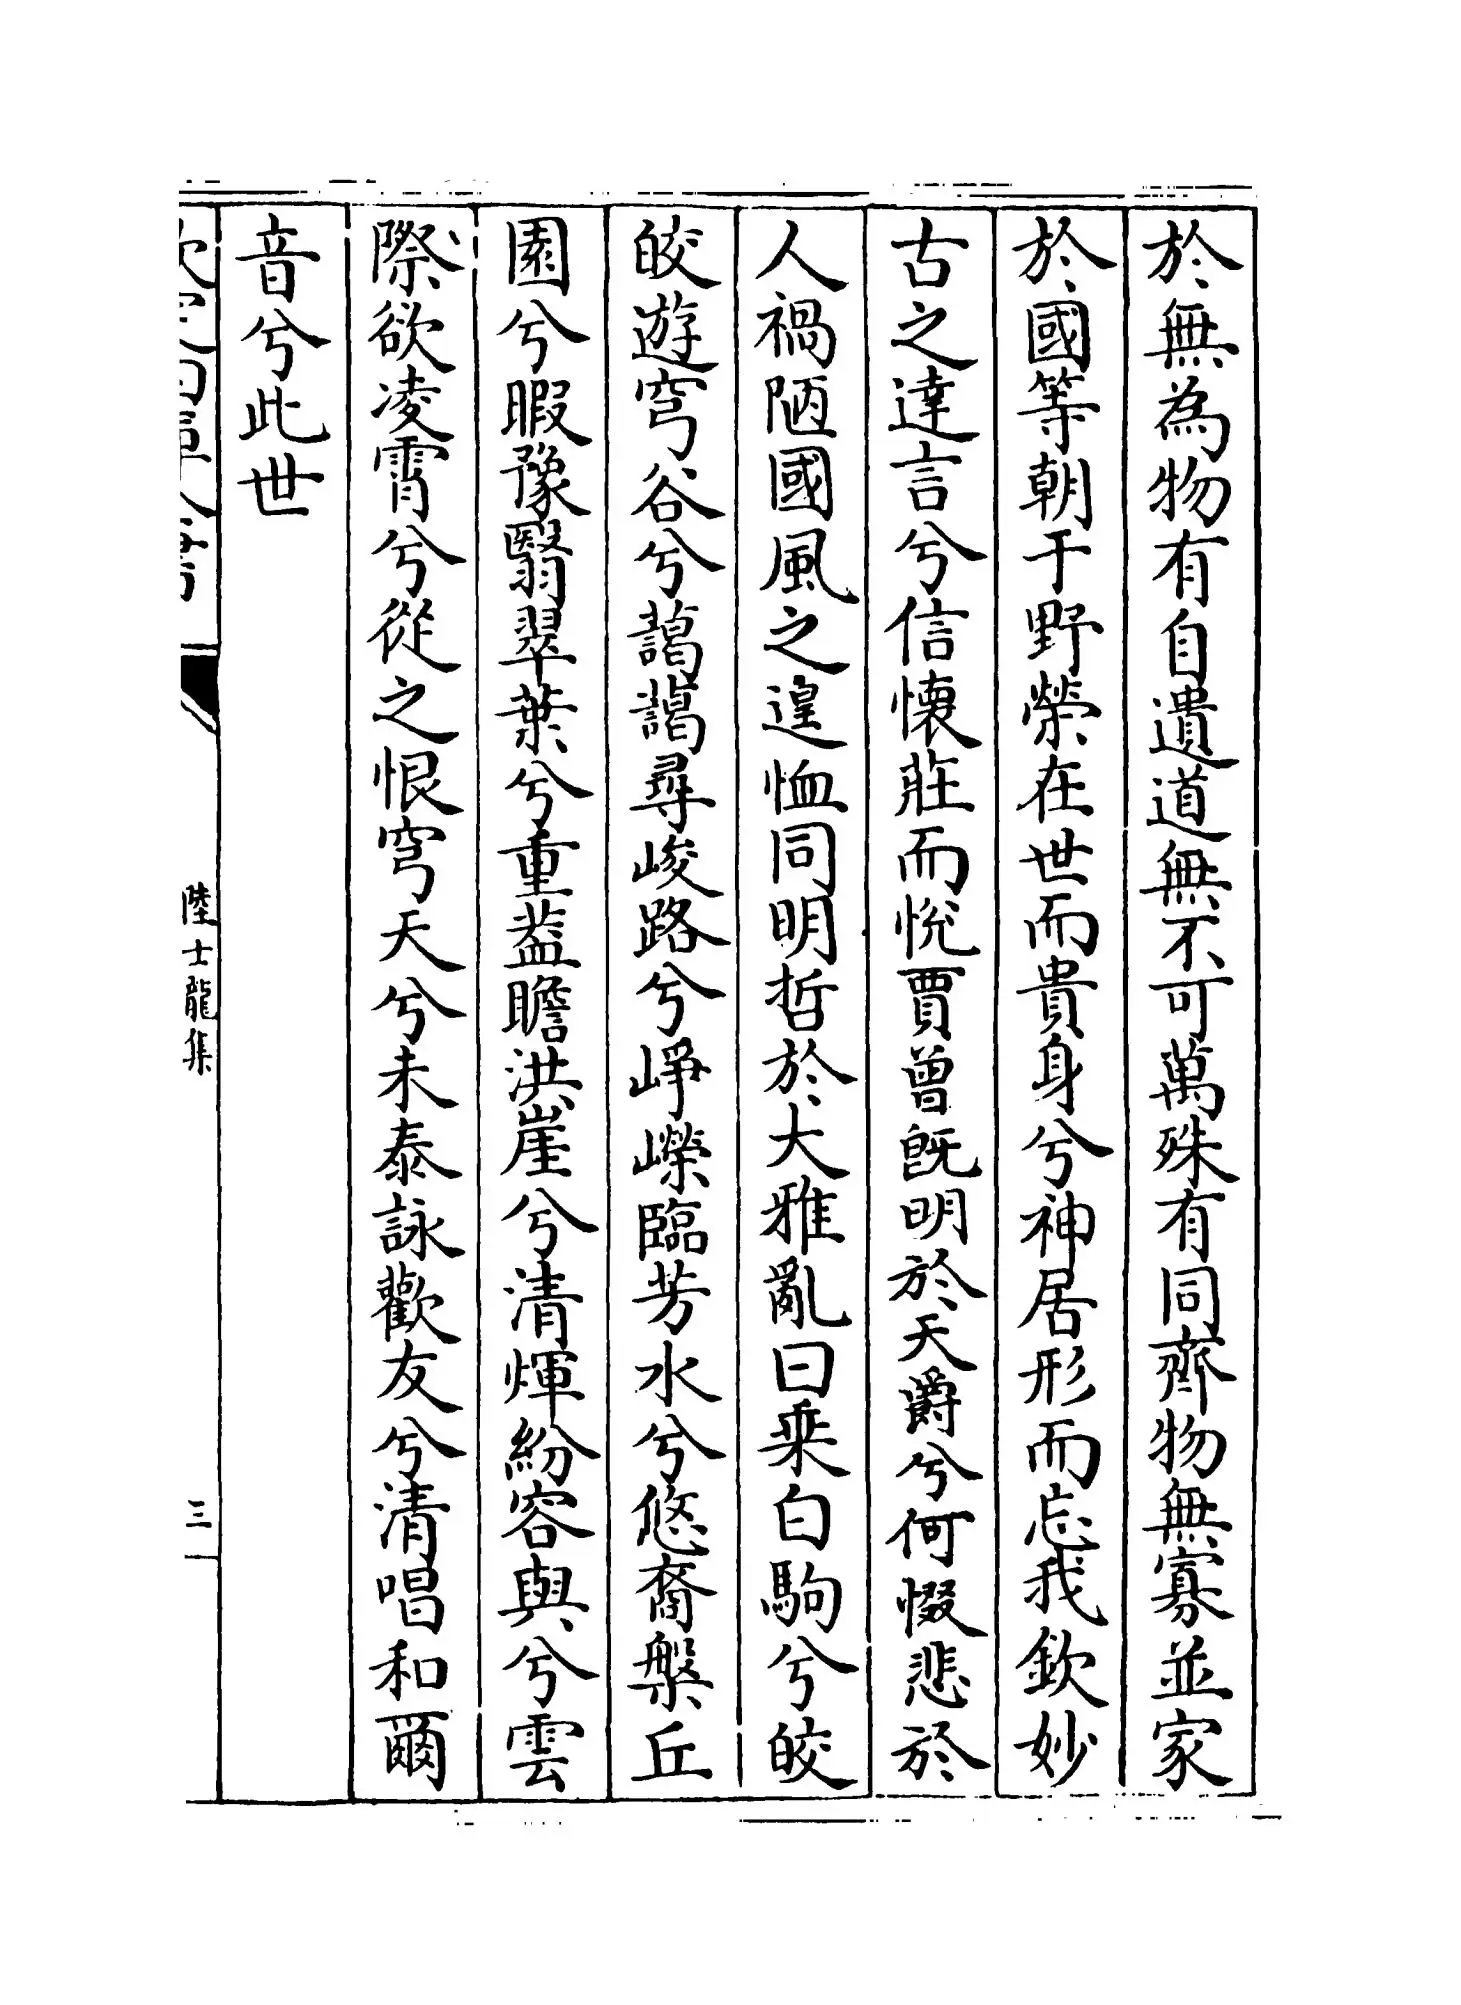 於無為物有自遺道無不可萬殊有同齊物無寡並家
於國等朝于野榮在世而貴身兮神居形而忘我欽妙
古之達言兮信懐莊而恱賈曾旣明於天爵兮何惙悲於
人禍陋國風之遑恤同明哲於大雅亂曰乘白駒兮皎
皎遊穹谷兮藹藹尋峻路兮崢嶸臨芳水兮悠裔槃丘
園兮暇豫翳翠葉兮重葢瞻洪崖兮清煇紛容與兮雲
際欲凌霄兮從之恨穹天兮未泰詠歡友兮清唱和爾
音兮此世
欽定四庫全書
陸士龍集
三